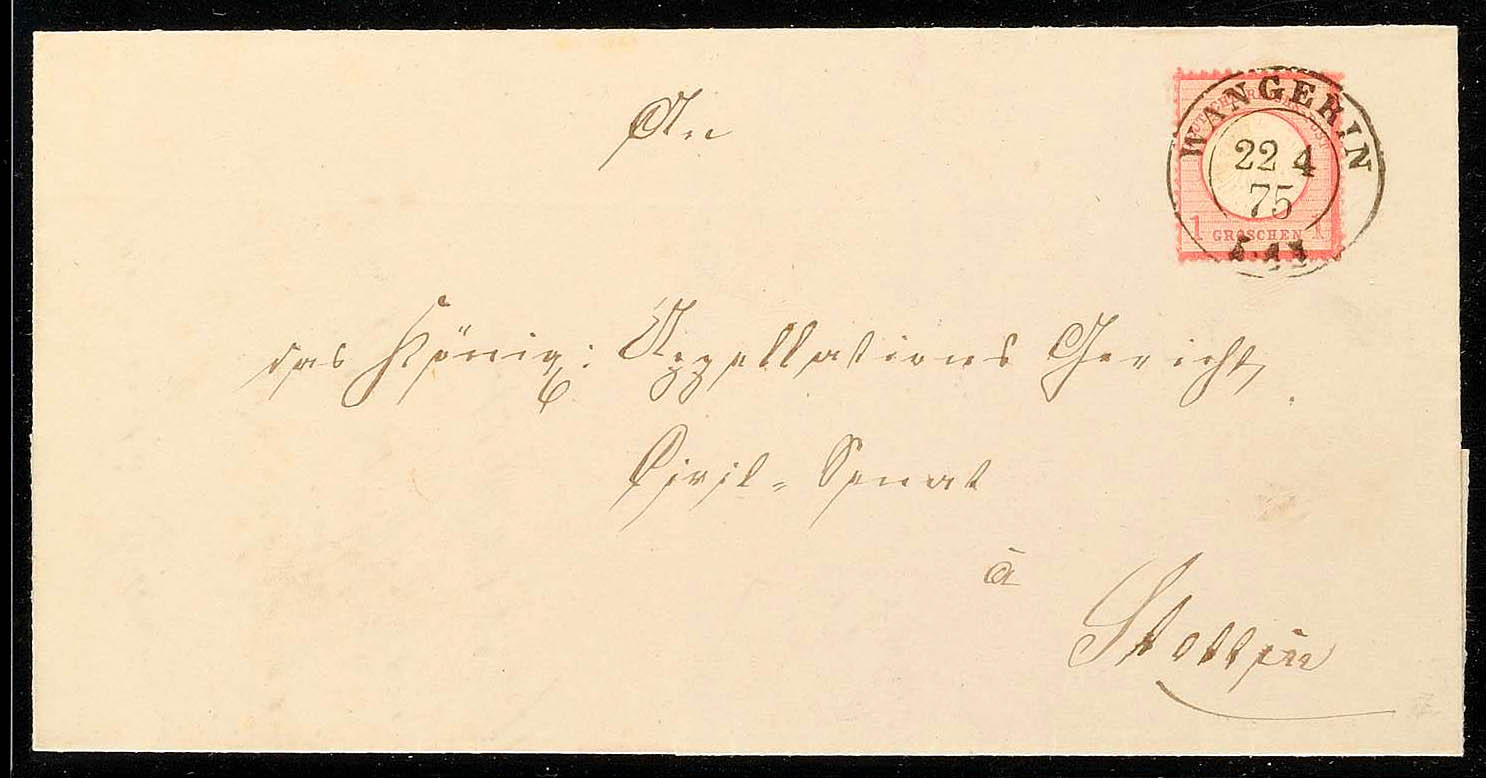 WANGERIN
22 4
75
1 GROSCHEN 1
An
das Königl: Appellations Gericht,
Civil-Senat
à
Stettin